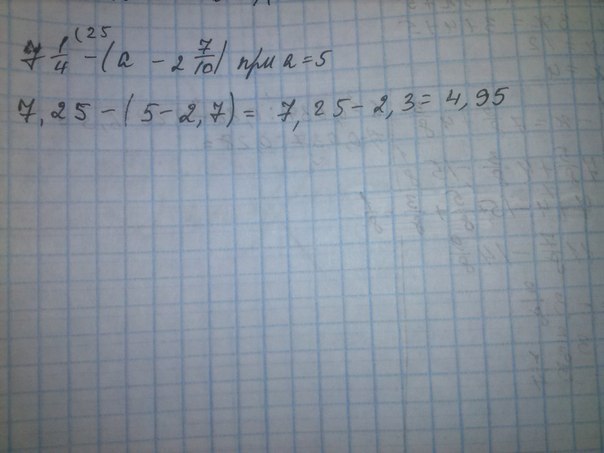 (25
7 1/4 - (a - 2 7/10) при a = 5
7,25 - (5 - 2,7) = 7,25 - 2,3 = 4,95